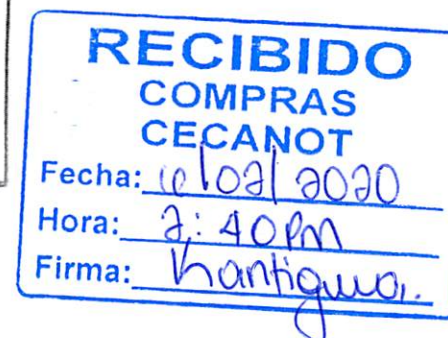 RECIBIDO
COMPRAS
CECANOT
Fecha: 10/02/2020
Hora: 2:40PM
Firma: